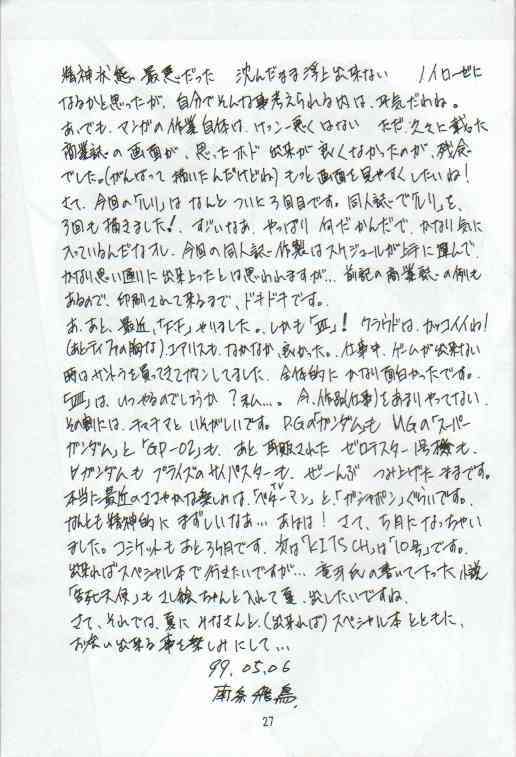 精神状態い最悪だった 沈んだまま浮上出来ない ノイローゼに
なるかと思ったが、自分でそんな事考えられる内は、平気だわね。
あ、でも、マンガの作業自体は、けっこー悪くはない ただ、久々に載った
商業誌の画面が、思ったホド 出来が良くなかったのが、残念
でした。(がんばって描いたんだけどね) もっと画面を見やすくしたいね!
さて、今回の「ルリ」は なんと ついに3回目です。同人誌で「ルリ」を、
3回も描きました! すごいなあ、やっぱり 何だかんだで、かなり気に
入っているんだなオレ、今回の同人誌作製はスケジュールが上手に運んで、
かなり思い通りに出来上ったとは思われますが… 前記の商業誌の例も
あるので、印刷されて来るまで、ドキドキです。
お、あと、最近、「FF」やりました。しかも「Ⅶ」! クラウドは、カッコイイね!
(あとティファの胸な) エアリスも、なかなか、良かった。仕事中、ゲームが出来ない
時はサントラを買ってきてガマンしてました、全体的に かなり面白かったです。
「Ⅷ」は、いつやるのでしょうか?私…。 今、作品(仕事)をあまりやってない、
その割には、キチキチと いそがしいです。P.Gの「ガンダム」も MGの「スーパー
ガンダム」と「GP-02」も、あと 再販された ゼロテスター 1号機も、
∀ガンダムも プライズのサイバスターも、ぜーんぶ つみ上げたままです。
本当に最近のささやかな楽しみは、TV「ベターマン」と、「ガシャポン」ぐらいです。
なんとも精神的に まずしいなあ… あはは! さて、5月になっちゃい
ました。コミケットも あと3ヶ月です、次は「KITSCH」は「10号」です。
出来ればスペシャル本で行きたいですが… 竜牙氏の書いて下った小説
「 天使」も さし絵ちゃんと入れて 夏、出したいですね
さて、それでは、夏に みなさんと、(出来れば) スペシャル本とともに、
お会い出来る事を楽しみにして…
99.05.06
南条飛鳥
27